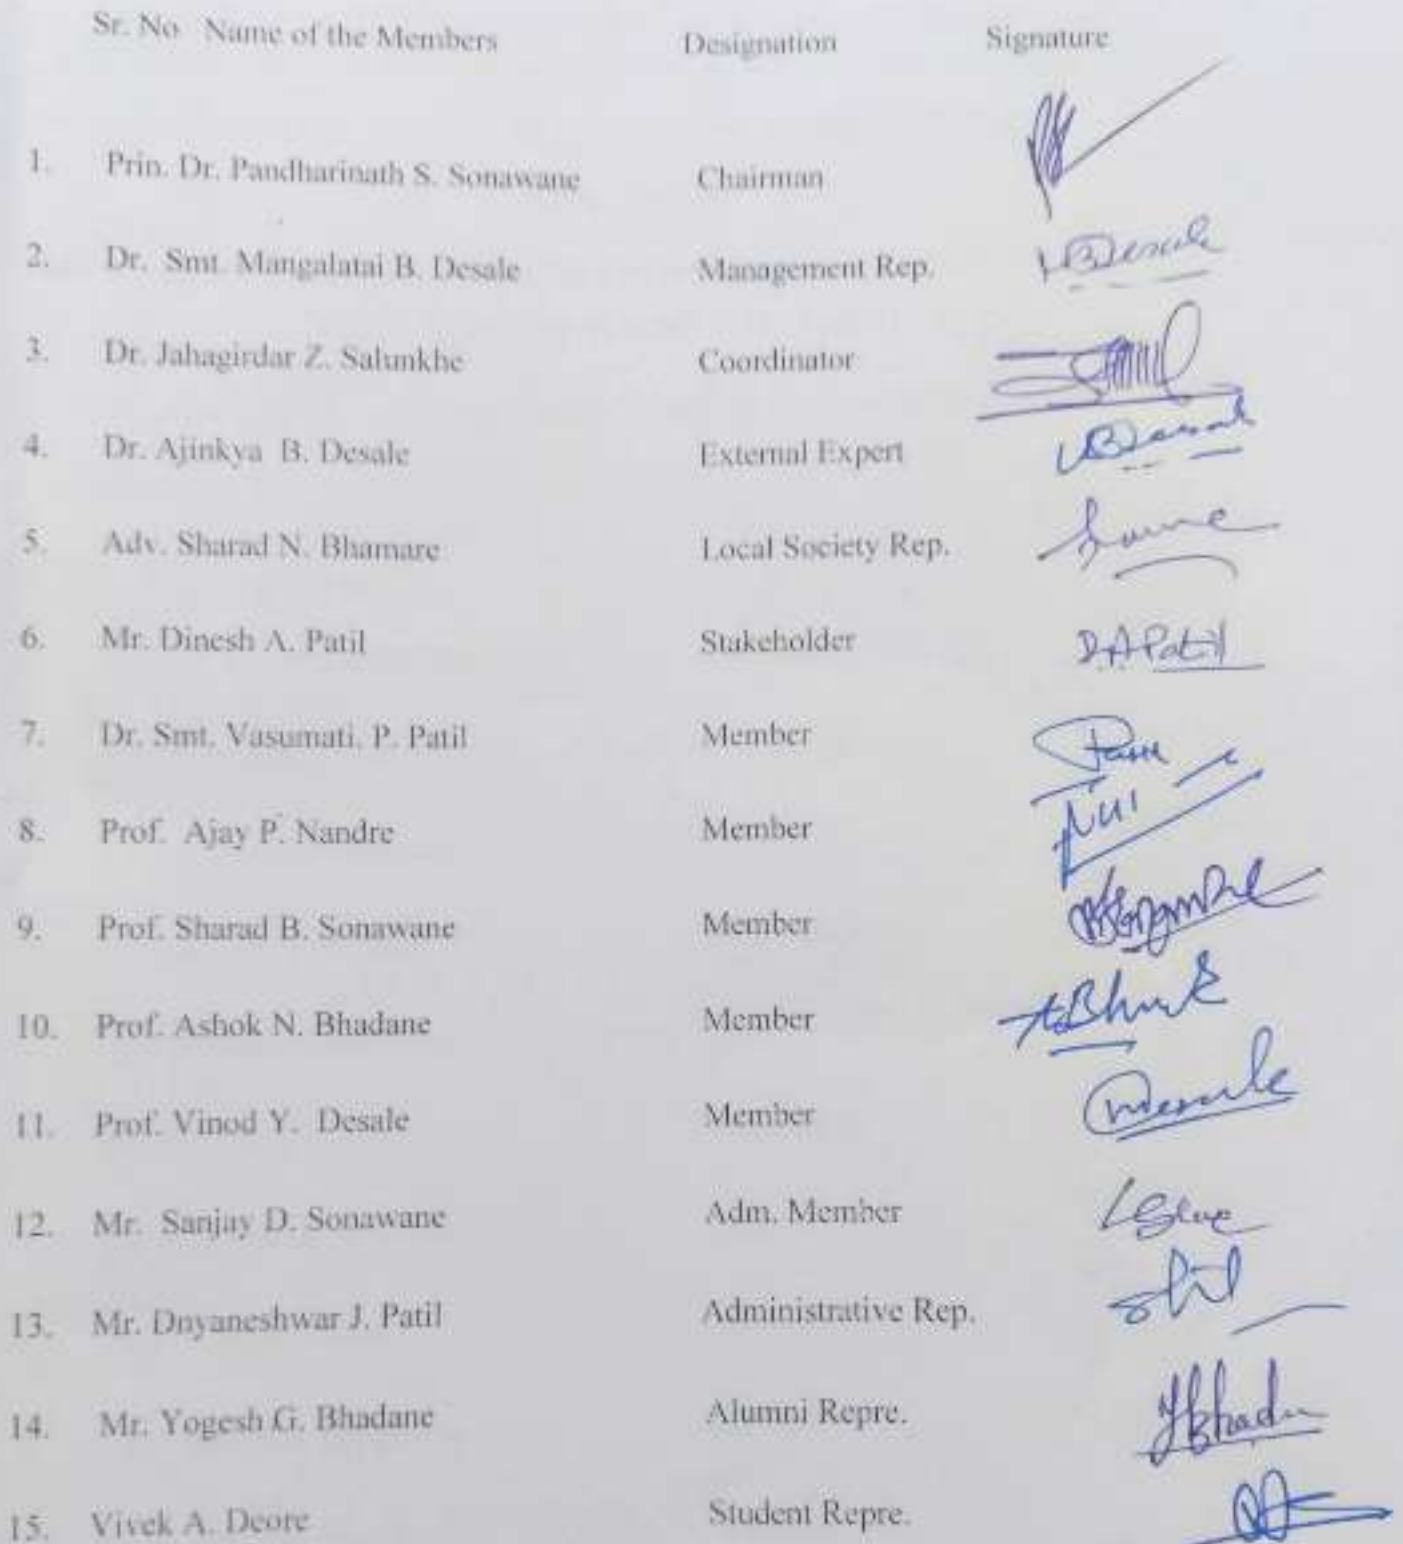 Sr. No Name of the Members Designation Signature
1. Prin. Dr. Pandharinath S. Sonawane Chairman
2. Dr. Smt. Mangalatai B. Desale Management Rep. Desale
3. Dr. Jahagirdar Z. Salunkhe Coordinator
4. Dr. Ajinkya B. Desale External Expert
5. Adv. Sharad N. Bhamare Local Society Rep.
6. Mr. Dinesh A. Patil Stakeholder D.A.Patil
7. Dr. Smt. Vasumati. P. Patil Member
8. Prof. Ajay P. Nandre Member
9. Prof. Sharad B. Sonawane Member
10. Prof. Ashok N. Bhadane Member
11. Prof. Vinod Y. Desale Member
12. Mr. Sanjay D. Sonawane Adm. Member
13. Mr. Dnyaneshwar J. Patil Administrative Rep.
14. Mr. Yogesh G. Bhadane Alumni Repre.
15. Vivek A. Deore Student Repre.